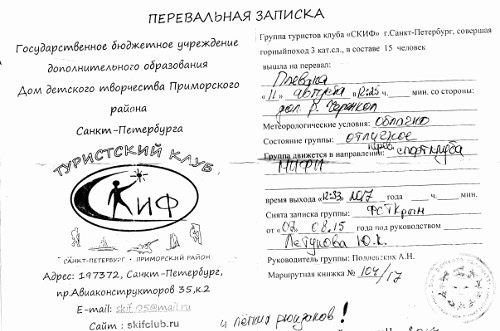 ПЕРЕВАЛЬНАЯ ЗАПИСКА
Государственное бюджетное учреждение
дополнительного образования
Дом детского творчества Приморского
района
Санкт-Петербурга
ТУРИСТСКИЙ КЛУБ
СКИФ
САНКТ-ПЕТЕРБУРГ • ПРИМОРСКИЙ РАЙОН
Адрес: 197372, Санкт-Петербург,
пр.Авиаконструкторов 35,к.2
E-mail: skif_35@mail.ru
Сайт : skifclub.ru
Группа туристов клуба «СКИФ» г.Санкт-Петербург, совершая
горныйпоход 3 кат.сл., в составе 15 человек
вышла на перевал:
« 11 » августа в 12:25 ч. мин. со стороны:
дол. р.
Метеорологические условия: облачно
Состояние группы: отличное
Группа движется в направлении: спортклуба
время выхода 12:33 2017 года ч. мин.
Снята записка группы:
от « 02 » 08.15 года под руководством
Ю.К.
Руководитель группы: А.Н.
Маршрутная книжка № 104/17
и лёгких рюкзаков!